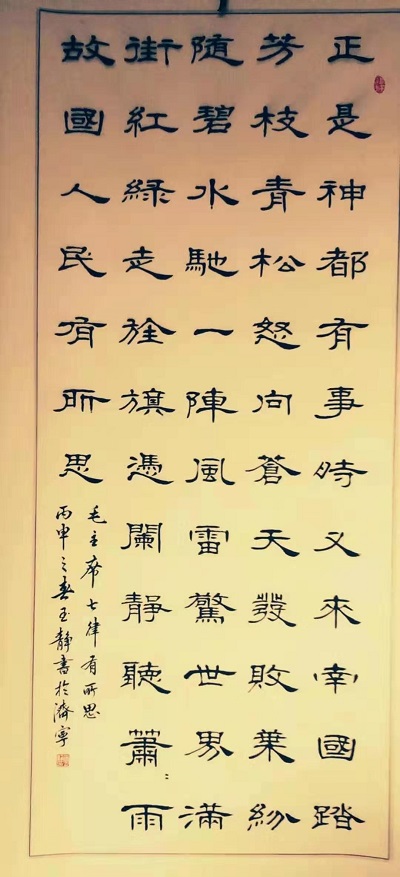 正是神都有事時又來南國踏
芳枝青松怒向蒼天發敗葉紛
隨碧水馳一陣風雷驚世界滿
街紅綠走旌旗憑闌靜聽蕭〻雨
故國人民有所思
毛主席七律有所思
丙申之春玉靜書於濟寧